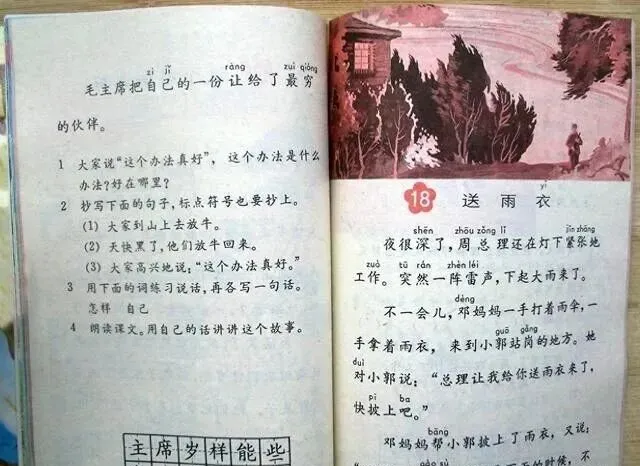 zì jǐ ràng zuì qióng
毛主席把自己的一份让给了最穷
的伙伴。
1 大家说“这个办法真好”，这个办法是什么
办法？好在哪里？
2 抄写下面的句子，标点符号也要抄上。
(1) 大家到山上去放牛。
(2) 天快黑了，他们放牛回来。
(3) 大家高兴地说：“这个办法真好。”
3 用下面的词练习说话，再各写一句话。
怎样 自己
4 朗读课文。用自己的话讲讲这个故事。
主席岁样能些
yī
18 送雨衣
shēn zhōu zǒng lǐ jǐn zhāng
夜很深了，周总理还在灯下紧张地
zuò tū rán zhèn léi
工作。突然一阵雷声，下起大雨来了。
dèng
不一会儿，邓妈妈一手打着雨伞，一
guō gǎng
手拿着雨衣，来到小郭站岗的地方。她
duì
对小郭说：“总理让我给你送雨衣来了，
pī ba
快披上吧。”
bāng
邓妈妈帮小郭披上了雨衣，又说：
gào sù
的时候，不